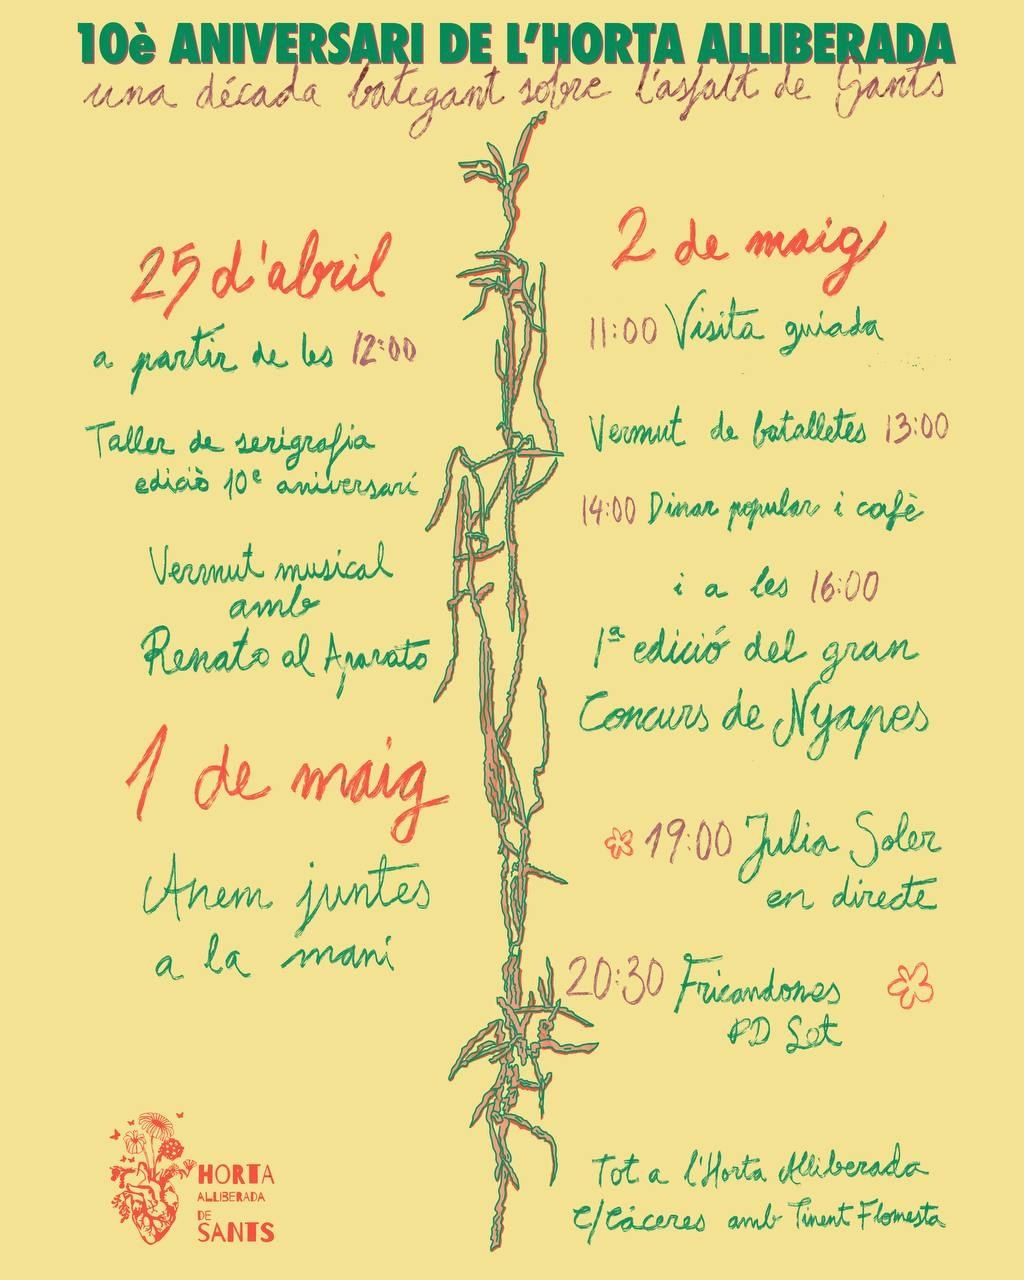 10è ANIVERSARI DE L'HORTA ALLIBERADA
una década bategant sobre l'asfalt de Sants
25 d'abril
a partir de les 12:00
Taller de serigrafia
edició 10è aniversari
Vermut musical
amb
Renato al Aparato
1 de maig
Anem juntes
a la mani
2 de maig
11:00 Visita guiada
Vermut de batalletes 13:00
14:00 Dinar popular i cafè
i a les 16:00
1ª edició del gran
Concurs de Nyapes
19:00 Julia Soler
en directe
20:30 Fricandones
PD Set
Tot a l'Horta Alliberada
C/Cáceres amb Tinent Flomesta
HORTA
ALLIBERADA
DE
SANTS